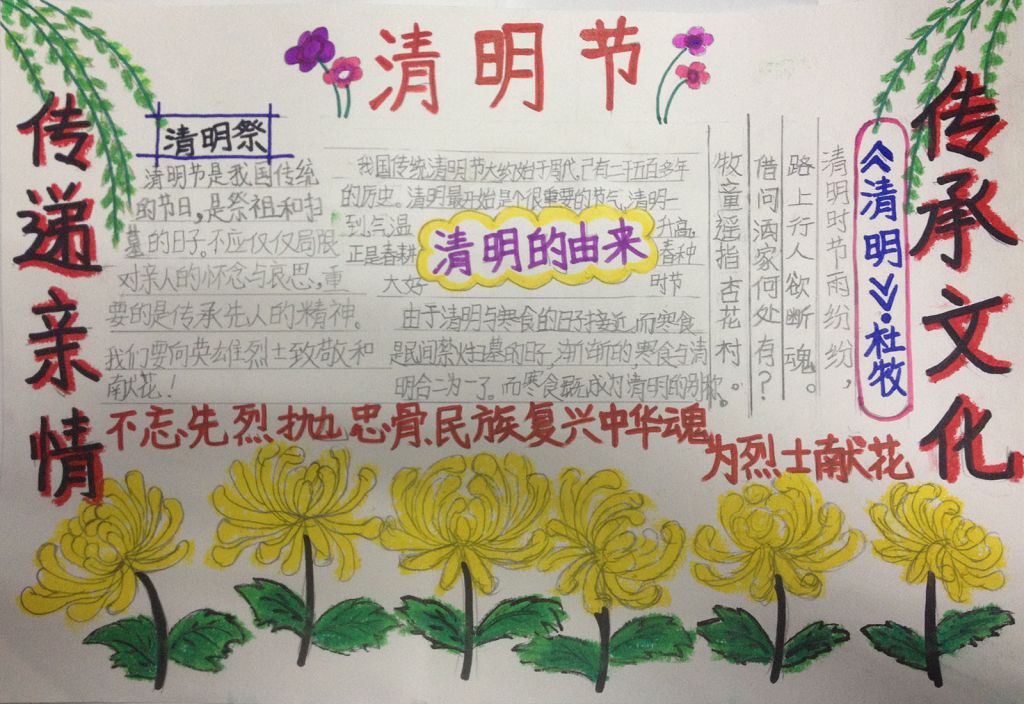 清明节
传递亲情
传承文化
清明祭
清明节是我国传统
的节日,是祭祖和扫
墓的日子。不应仅仅局限
对亲人的怀念与哀思,重
要的是传承先人的精神。
我们要向英雄烈士致敬和
献花!
清明的由来
我国传统清明节大约始于周代,已有二千五百多年
的历史。清明最开始是个很重要的节气,清明一
到,气温升高,
正是春耕春种
大好时节
由于清明与寒食的日子接近,而寒食
是民间禁火扫墓的日子,渐渐的寒食与清
明合二为一了。而寒食既成为清明的别称。
《清明》·杜牧
清明时节雨纷纷,
路上行人欲断魂。
借问酒家何处有?
牧童遥指杏花村。
不忘先烈抛忠骨、民族复兴中华魂
为烈士献花